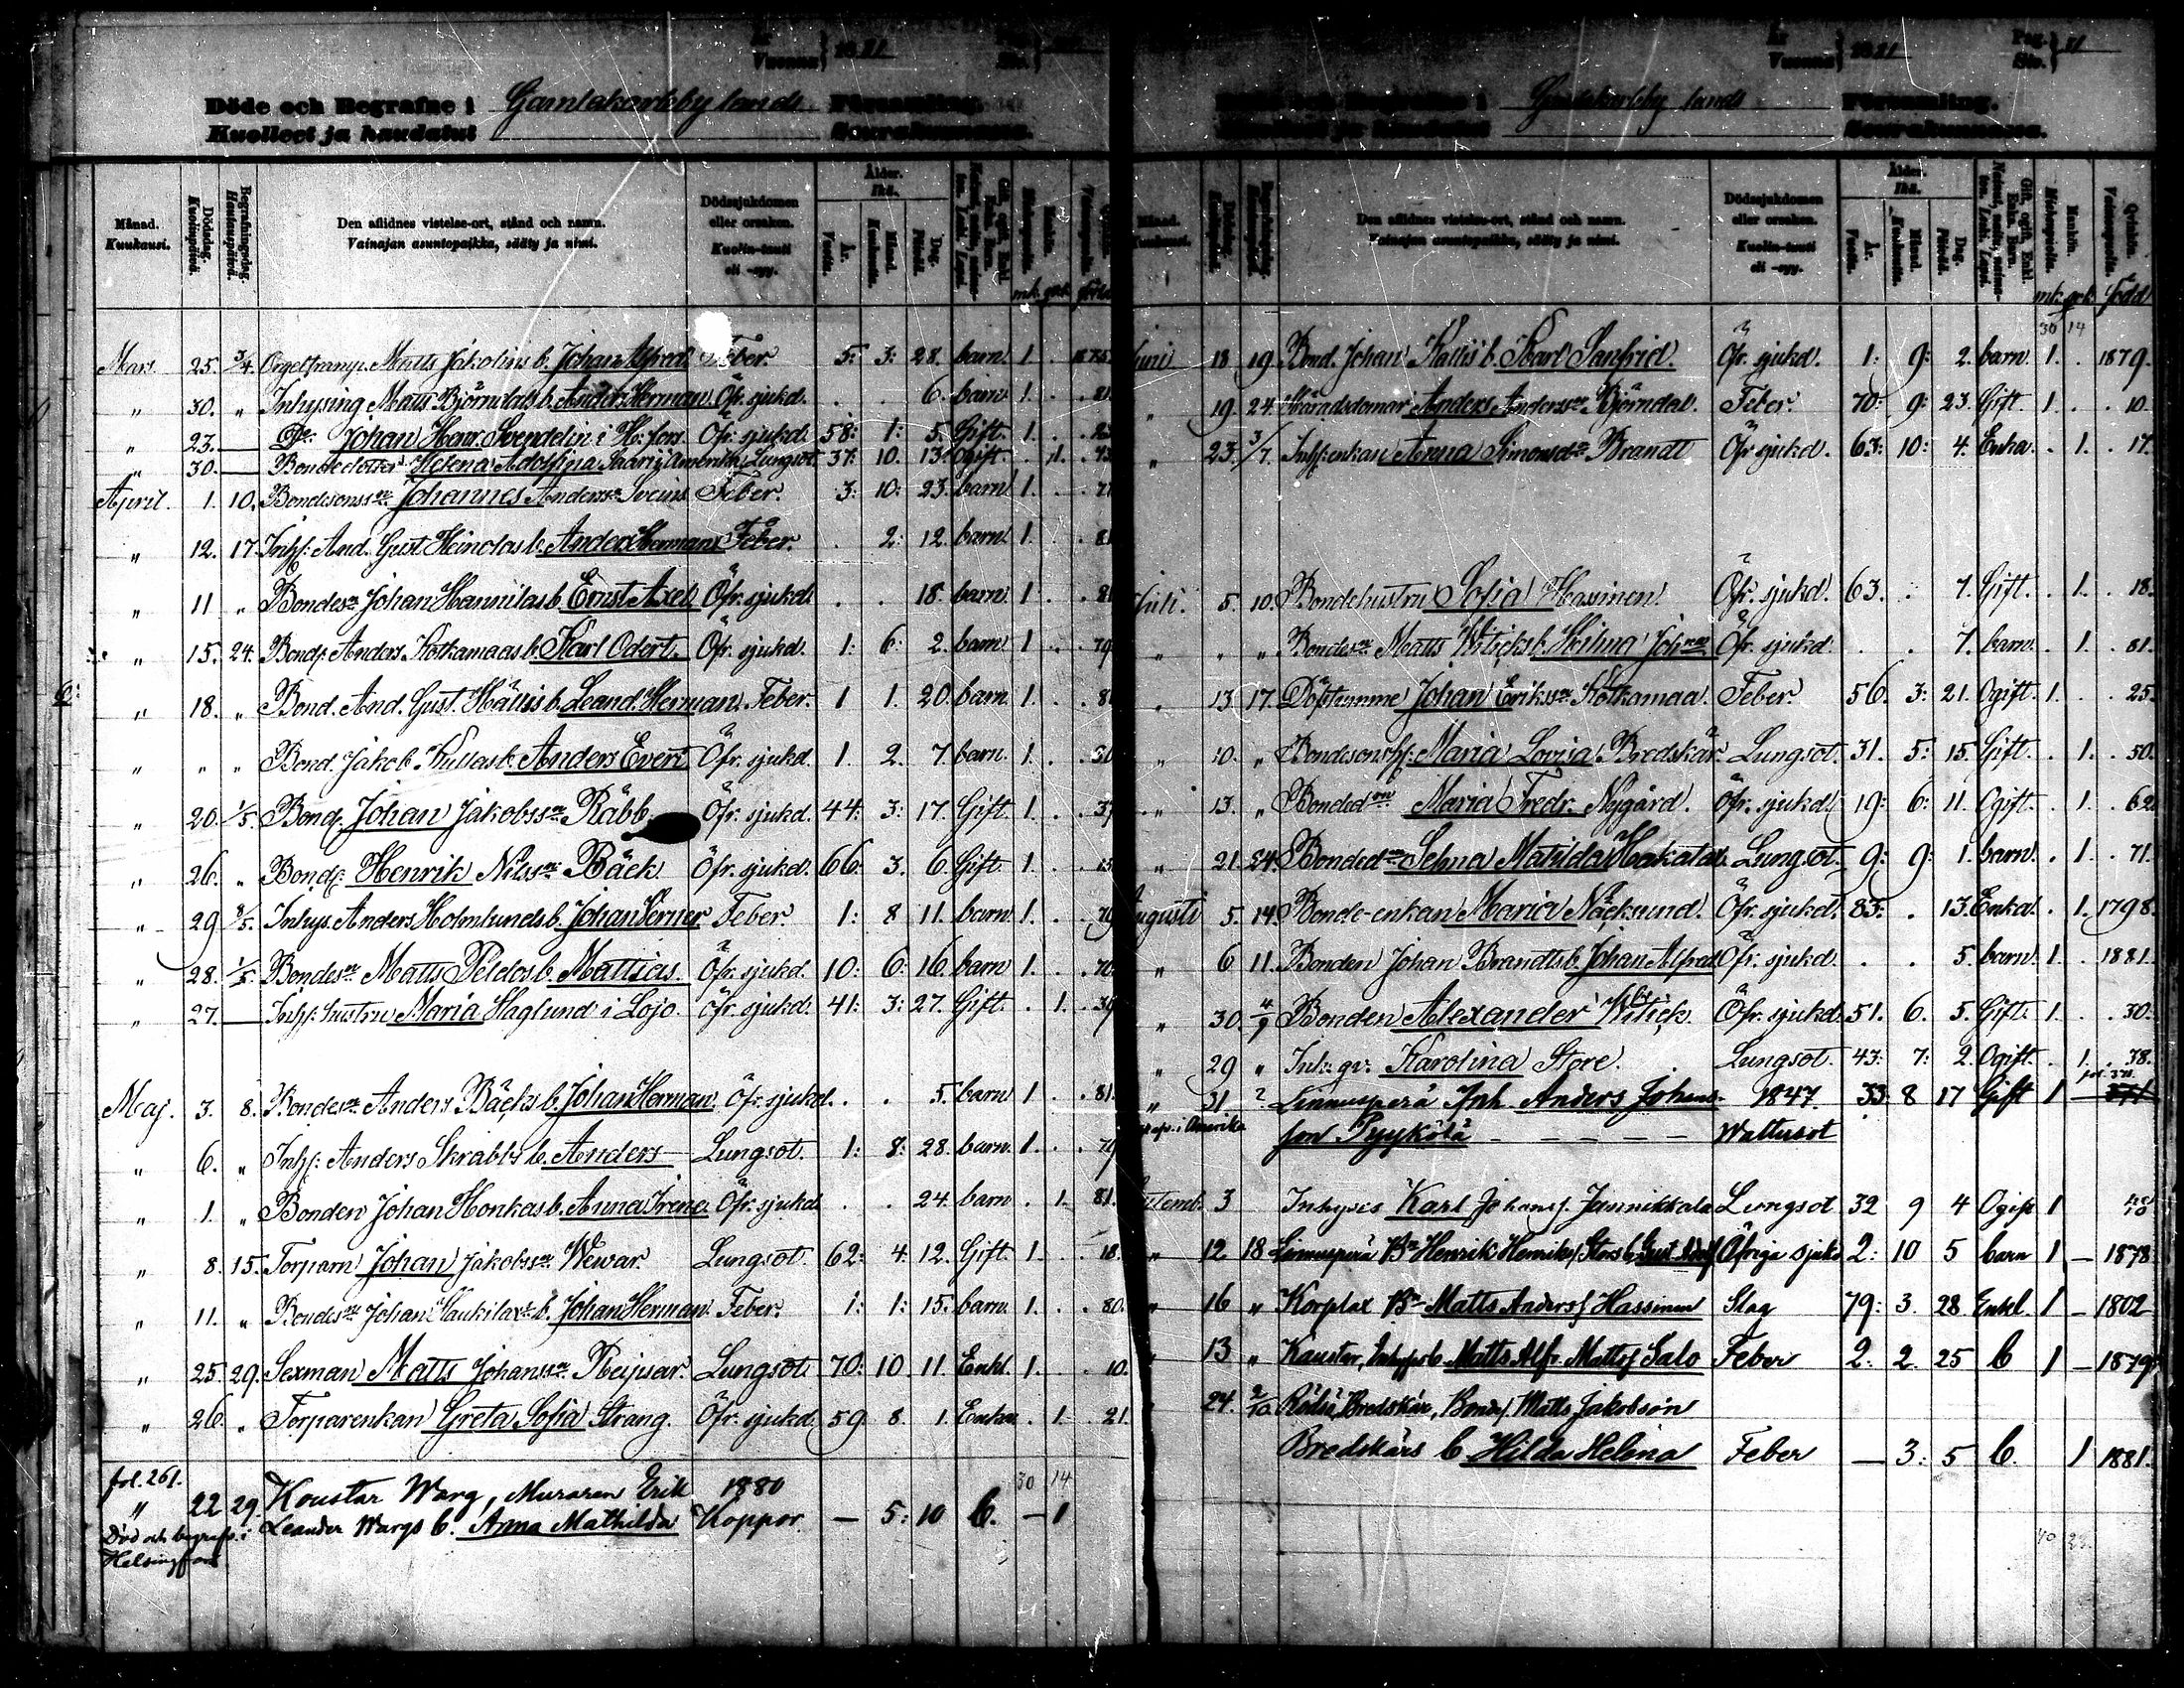 År Vuonna } 1881
Döde och Begrafne i Gamlakarleby lands Församling.
Kuolleet ja haudatut Seurakunnassa.
Månad. Kuukausi. Dödsdag. Kuolinpäivä. Begrafningsdag. Hautauspäivä. Den aflidnes vistelse-ort, stånd och namn. Vainajan asuntopaikka, sääty ja nimi. Dödssjukdomen eller orsaken. Kuolin-tauti eli -syy. Ålder. Ikä. År. Vuotta. Månad. Kuukautta. Dag. Päivää.
mk. qvk. född
Mars 25. 3/4. Orgeltramp. Matts Jakolins b. Johan Alfred Feber. 5: 3: 28. barn 1 . 1875
" 30. " Inhysing Matts Björndals b. Anders Herman Öfr. sjukd. . . 6. barn 1. . 81
" 23. — Johan Henr. Svendelin i H:fors Öfr. sjukd. 58: 1: 5. Gift. 1.
" 30. — Bondedotter Helena Adolfina Saari i Amerika Lungsot. 37: 10. 13. ogift. . 1. 43
April. 1. 10. Bondesonss. Johannes Anderss. Sveins Feber. 3: 10: 23. barn 1. . 77
" 12. 17. Inhs: And. Gust. Heinolas b. Anders Hermans Feber. . 2: 12. barn 1 . 81
" 11 " Bondesn Johan Hannilas b. Ernst Axel Öfr. sjukd. . . 18. barn 1 . 81
" 15. 24. Bond. Anders Kotkamaas b. Karl Odert. Öfr. sjukd. 1: 6: 2. barn 1 . 79
" 18. " Bond. And. Gust. Hällis b. Leand. Herman. Feber. 1 1. 20. barn. 1. . 80
" " " Bond. Jakob Kullas b. Anders Evert Öfr. sjukd. 1. 2. 7. barn. 1. . 80
" 20. 1/5. Bond. Johan Jakobssn Räbb Öfr. sjukd. 44: 3: 17. Gift. 1. . 37
" 26. " Bond. Henrik Nilssn Bäck Öfr. sjukd. 66: 3. 6. Gift. 1. . 15
" 29 8/5. Inhys. Anders Holmlunds b. Johan Verner Feber 1: 8 11. barn 1. . 79
" 28. 1/5. Bondesn Matts Peldos b. Mattias. Öfr. sjukd. 10: 6: 16. barn 1. . 70
" 27. — Inhs: hustru Maria Haglund i Lojo. Öfr. sjukd. 41: 3: 27. Gift. . 1. 39
Maj. 3. 8. Bondesn Anders Bäcks b. Johan Herman Öfr. sjukd. . . 5. barn 1 . 81.
" 6. " Inhs: Anders Skrabbs b. Anders Lungsot. 1: 8: 28. barn. 1. . 79
" 1. " Bonden Johan Honkas b. Anna Irene. Öfr. sjukd. . . 24. barn . 1. 81.
" 8. 15. Torparn Johan Jakobssn Wewar. Lungsot. 62: 4: 12. Gift. 1. . 18.
" 11. " Bondesn Johan Haukilax b. Johan Herman. Feber. 1: 1: 15. barn. 1. . 80.
" 25. 29. Sexman Matts Johanssn Peijsar. Lungsot. 70: 10 11. Enkl. 1. . 10.
" 26. " Torparenkan Greta Sofia Strang. Öfr. sjukd. 59 8. 1. Enka . 1. 21.
fol. 261. 30 14
" 22 29. Koustar Warg, Muraren Erik 1880
Död och begrafv. i Leander Wargs b. Anna Mathilda Koppor. — 5: 10 b. — 1
Helsingfors
År Vuonna } 1881 Pag. Siv. } 11
Gamlakarleby lands Församling.
Seurakunnassa.
Månad. Den aflidnes vistelse-ort, stånd och namn. Vainajan asuntopaikka, sääty ja nimi. Dödssjukdomen eller orsaken. Kuolin-tauti eli -syy. Ålder. Ikä. År. Vuotta. Månad. Kuukautta. Dag. Päivää.
mk: qvk: född
30 14
Juni 18 19. Bond. Johan Kallis b. Karl Sanfrid. Öfr. sjukd. 1: 9: 2. barn. 1. . 1879.
" 19. 24. Häradsdomar Anders Anderssn Björndal. Feber. 70: 9: 23. Gift. 1. . 10.
" 23. 3/7. Inhs: enkan Anna Simonsdr Brandt Öfr. sjukd. 63: 10: 4. Enka. . 1. 17.
Juli. 5. 10. Bondehustru Sofia Hassinen. Öfr. sjukd. 63. . 7. Gift. . 1. 18.
" " " Bondesn Matts Witicks b. Hilma Joh:na Öfr. sjukd. . . 7. barn. . 1. 81.
" 13 17. Döfstumme Johan Erikssn Kotkamaa. Feber. 56. 3: 21. Ogift. 1. . 25.
" 10. " Bondesonshs: Maria Lovisa Bredskär. Lungsot. 31. 5: 15. Gift. . 1. 50.
" 13. " Bonded Maria Fredr. Nygård. Öfr. sjukd. 19: 6: 11. Ogift. . 1. 62.
" 21. 24. Bonded Selma Matilda Hakala. Lungsot. 9: 9: 1. barn. . 1. 71.
Augusti 5. 14. Bonde-enkan Maria Näcksund. Öfr. sjukd. 83. . 13. Enka. . 1. 1798.
" 6 11. Bonden Johan Brandts b. Johan Alfred Öfr. sjukd. . . 5. barn. 1. . 1881.
" 30. 4/9 Bonden Alexander Witick. Öfr. sjukd. 51. 6. 5. Gift. 1. . 30.
" 29 " Inh: qv: Karolina Store. Lungsot. 43: 7: 2. Ogift. . 1. 38.
" 31 ? Linnusperä Inh. Anders Johans- 1847. 33 8 17 Gift 1
i Amerika son Pyykölä — — — — — Wattusot
Septemb. 3 Inhyses Karl Johans. Jannikkala Lungsot 32 9 4 Ogift 1
" 12 18 Linnusperä Bn Henrik Henriks. Stors b. Gust. Adolf Öfriga sjukd. 2: 10 5 barn 1 — 1878
" 16 " Korplax Bn Matts Anders. Hassinen Slag 79: 3. 28 Enkl. 1 — 1802
" 13 " Kaustar, Inhyses b. Matts Alfr. Matts. Salo Feber 2: 2. 25 b 1 — 1879
24. 2/10 Rödsö, Bredskär, Bonds. Matts Jakobson
Bredskärs b. Hilda Helena Feber — 3: 5 b. 1 1881.
40